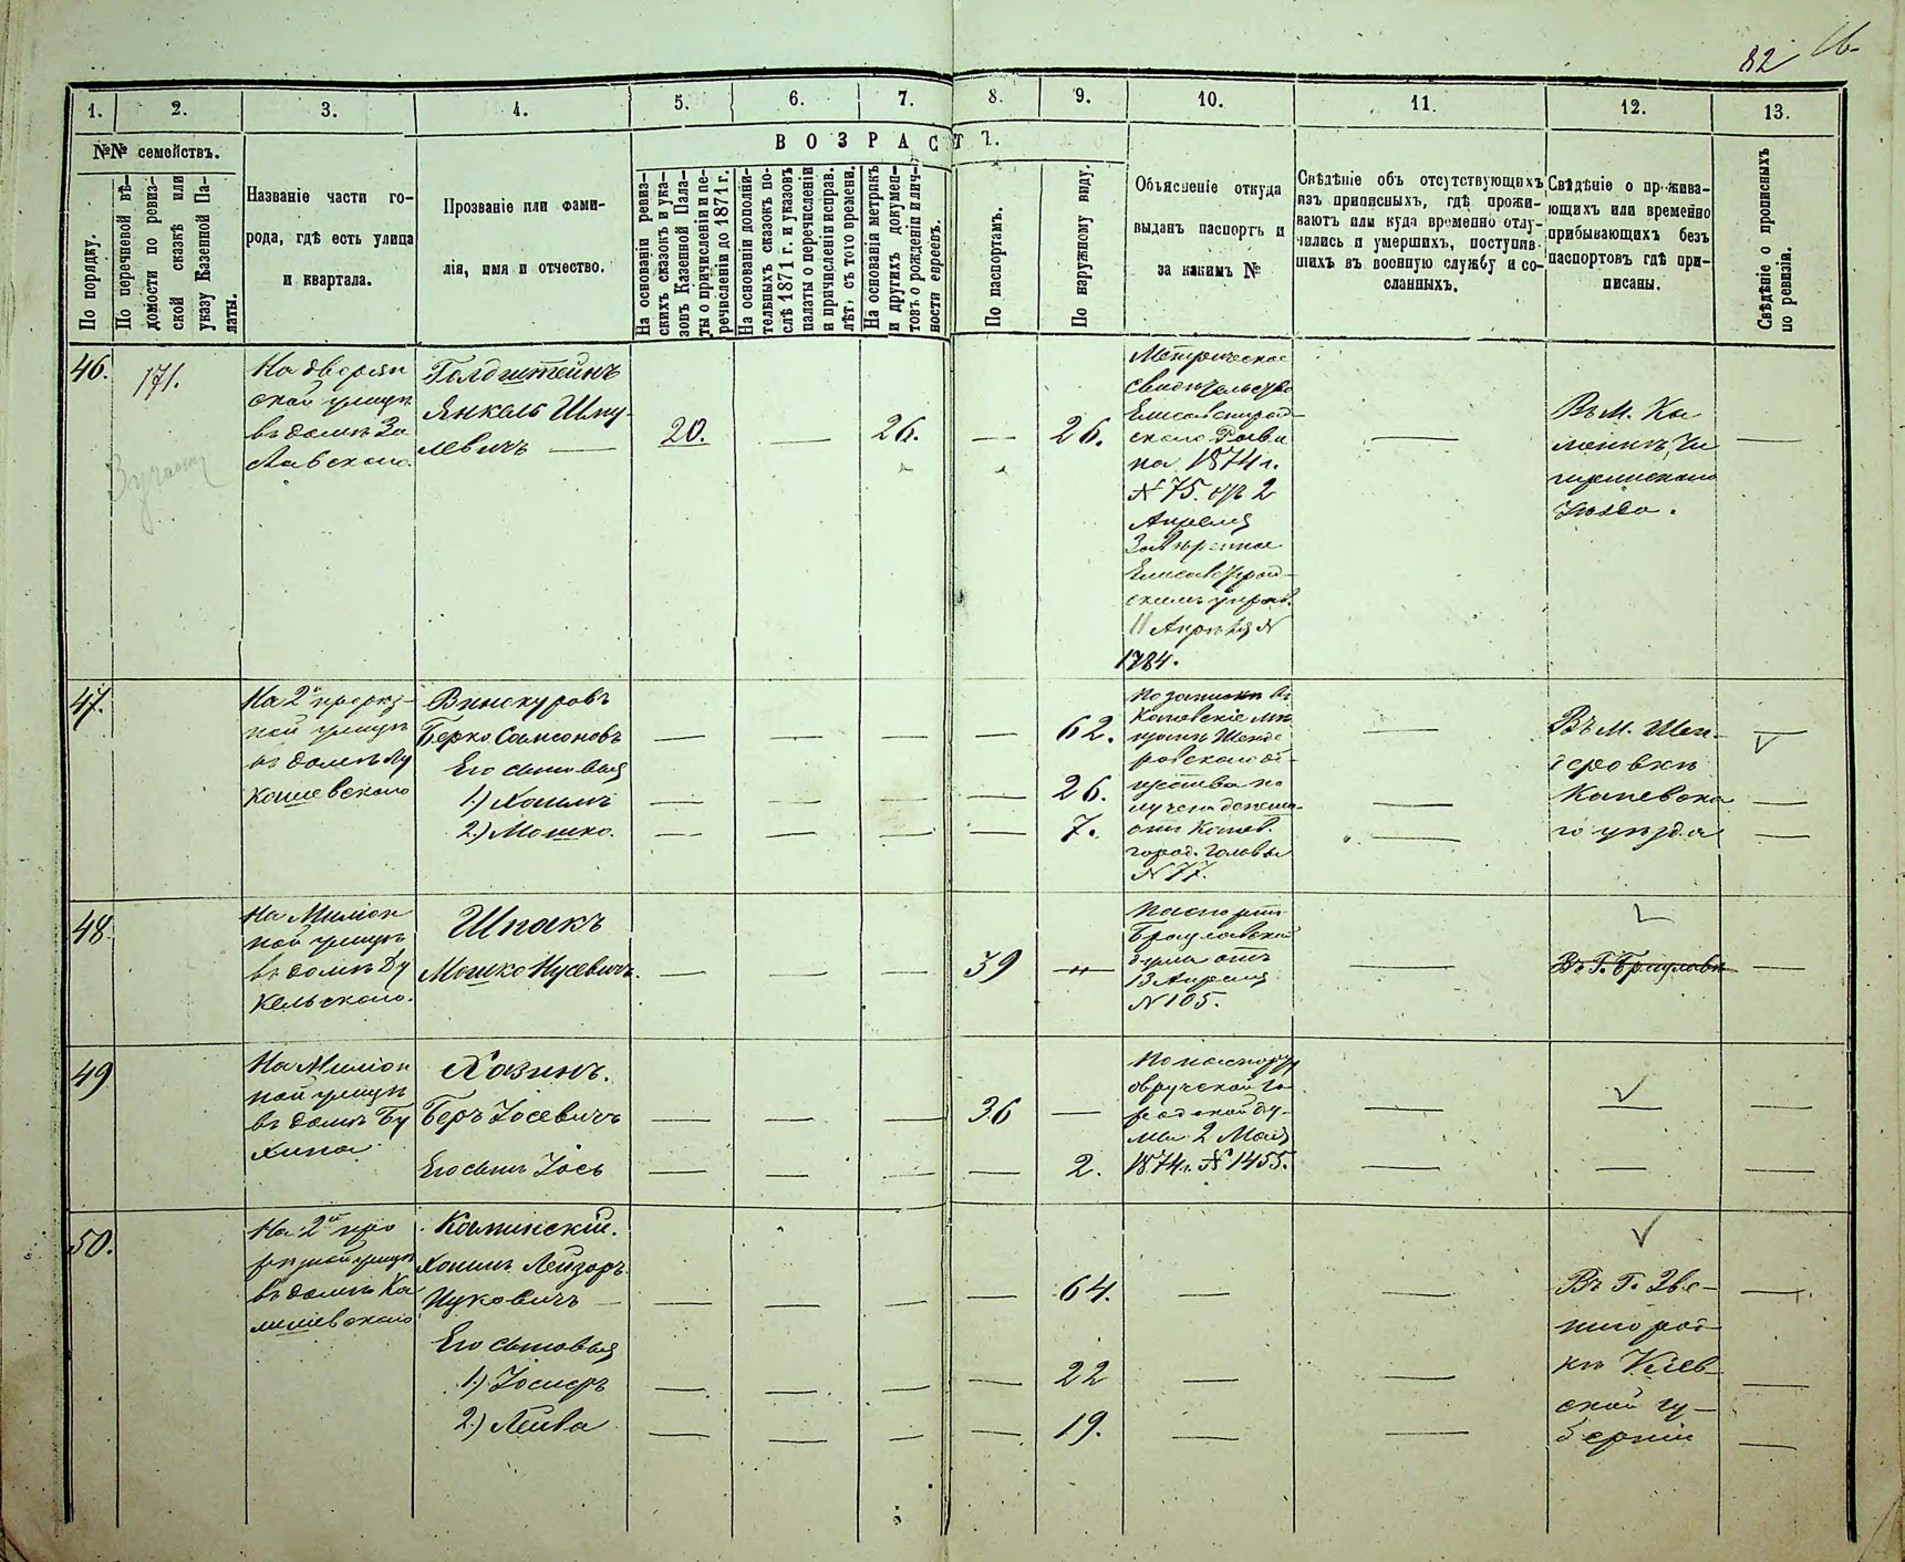 82
1. 2. 3. 4. 5. 6. 7. 8. 9. 10. 11. 12. 13.
№№ семействъ.
По порядку.
По перечневой вѣ-
домости по ревиз-
ской сказкѣ или
указу Казенной Па-
латы.
Названіе части го-
рода, гдѣ есть улица
и квартала.
Прозваніе или фами-
лія, имя и отчество.
ВОЗРАСТЪ.
На основаніи ревиз-
скихъ сказокъ и ука-
зовъ Казенной Пала-
ты о причисленіи и пе-
речисленіи до 1871 г.
На основаніи дополни-
тельныхъ сказокъ по-
слѣ 1871 г. и указовъ
палаты о перечисленіи
и причисленіи исправ.
лѣтъ съ того времени.
На основаніи метрикъ
и другихъ докумен-
товъ о рожденіи и лич-
ности евреевъ.
По паспортамъ.
По наружному виду.
Объясненіе откуда
выданъ паспортъ и
за какимъ №
Свѣдѣніе объ отсутствующихъ
изъ приписныхъ, гдѣ прожи-
ваютъ или куда временно отлу-
чились и умершихъ, поступив-
шихъ въ военную службу и со-
сланныхъ.
Свѣдѣніе о прожива-
ющихъ или временно
прибывающихъ безъ
паспортовъ гдѣ при-
писаны.
Свѣдѣніе о прописныхъ
по ревизіи.
46.
171.
На дворян
ской улицѣ
въ домѣ За
славскаго.
Голдштейнъ
Янкель Шму-
левичъ —
20.
—
26.
—
26.
Метрическое
свидѣтельство
Елисаветград-
скаго Равви
на 1874 г.
№ 75. отъ 2
Апреля
Завѣренное
Елисаветград-
скимъ управ.
11 Апрѣля №
1784.
—
Въ М. Ка
менкѣ, Чи
гиринскаго
уѣзда.
—
47.
На 2й прорѣз-
ной улицѣ
въ домѣ Лу
кашевскаго
Винокуровъ
Берко Самсоновъ
Его сыновья
1.) Хаимъ
2.) Мошко.
62.
26.
7.
По запискѣ
отъ Канев.
город. Головы
№ 77.
Въ М. Шен-
деровкѣ
Каневска
го уѣзда
48.
На Миліон
ной улицѣ
въ домѣ Ду
кельскаго.
Шпакъ
Мошко Нусевичъ.
39
Паспортъ
Брацлавской
думы отъ
13 Апреля
№ 105.
Въ Г. Брацлавѣ
49
На Миліон
ной улицѣ
въ домѣ Бу
хина
Хазинъ.
Беръ Іосевичъ
Его сынъ Іось
36
2.
По паспорту
овручской го
родской ду-
мы 2 Мая
1874 г. № 1455.
50.
На 2й про
рѣзной улицѣ
въ домѣ Ка
Каминскій.
Хаимъ Лейзоръ
Ицковичъ —
Его сыновья
1.) Іосифъ
2.) Лейба
64.
22
19.
Въ Г. Зве-
нигород-
кѣ Кіев-
ской гу-
берніи